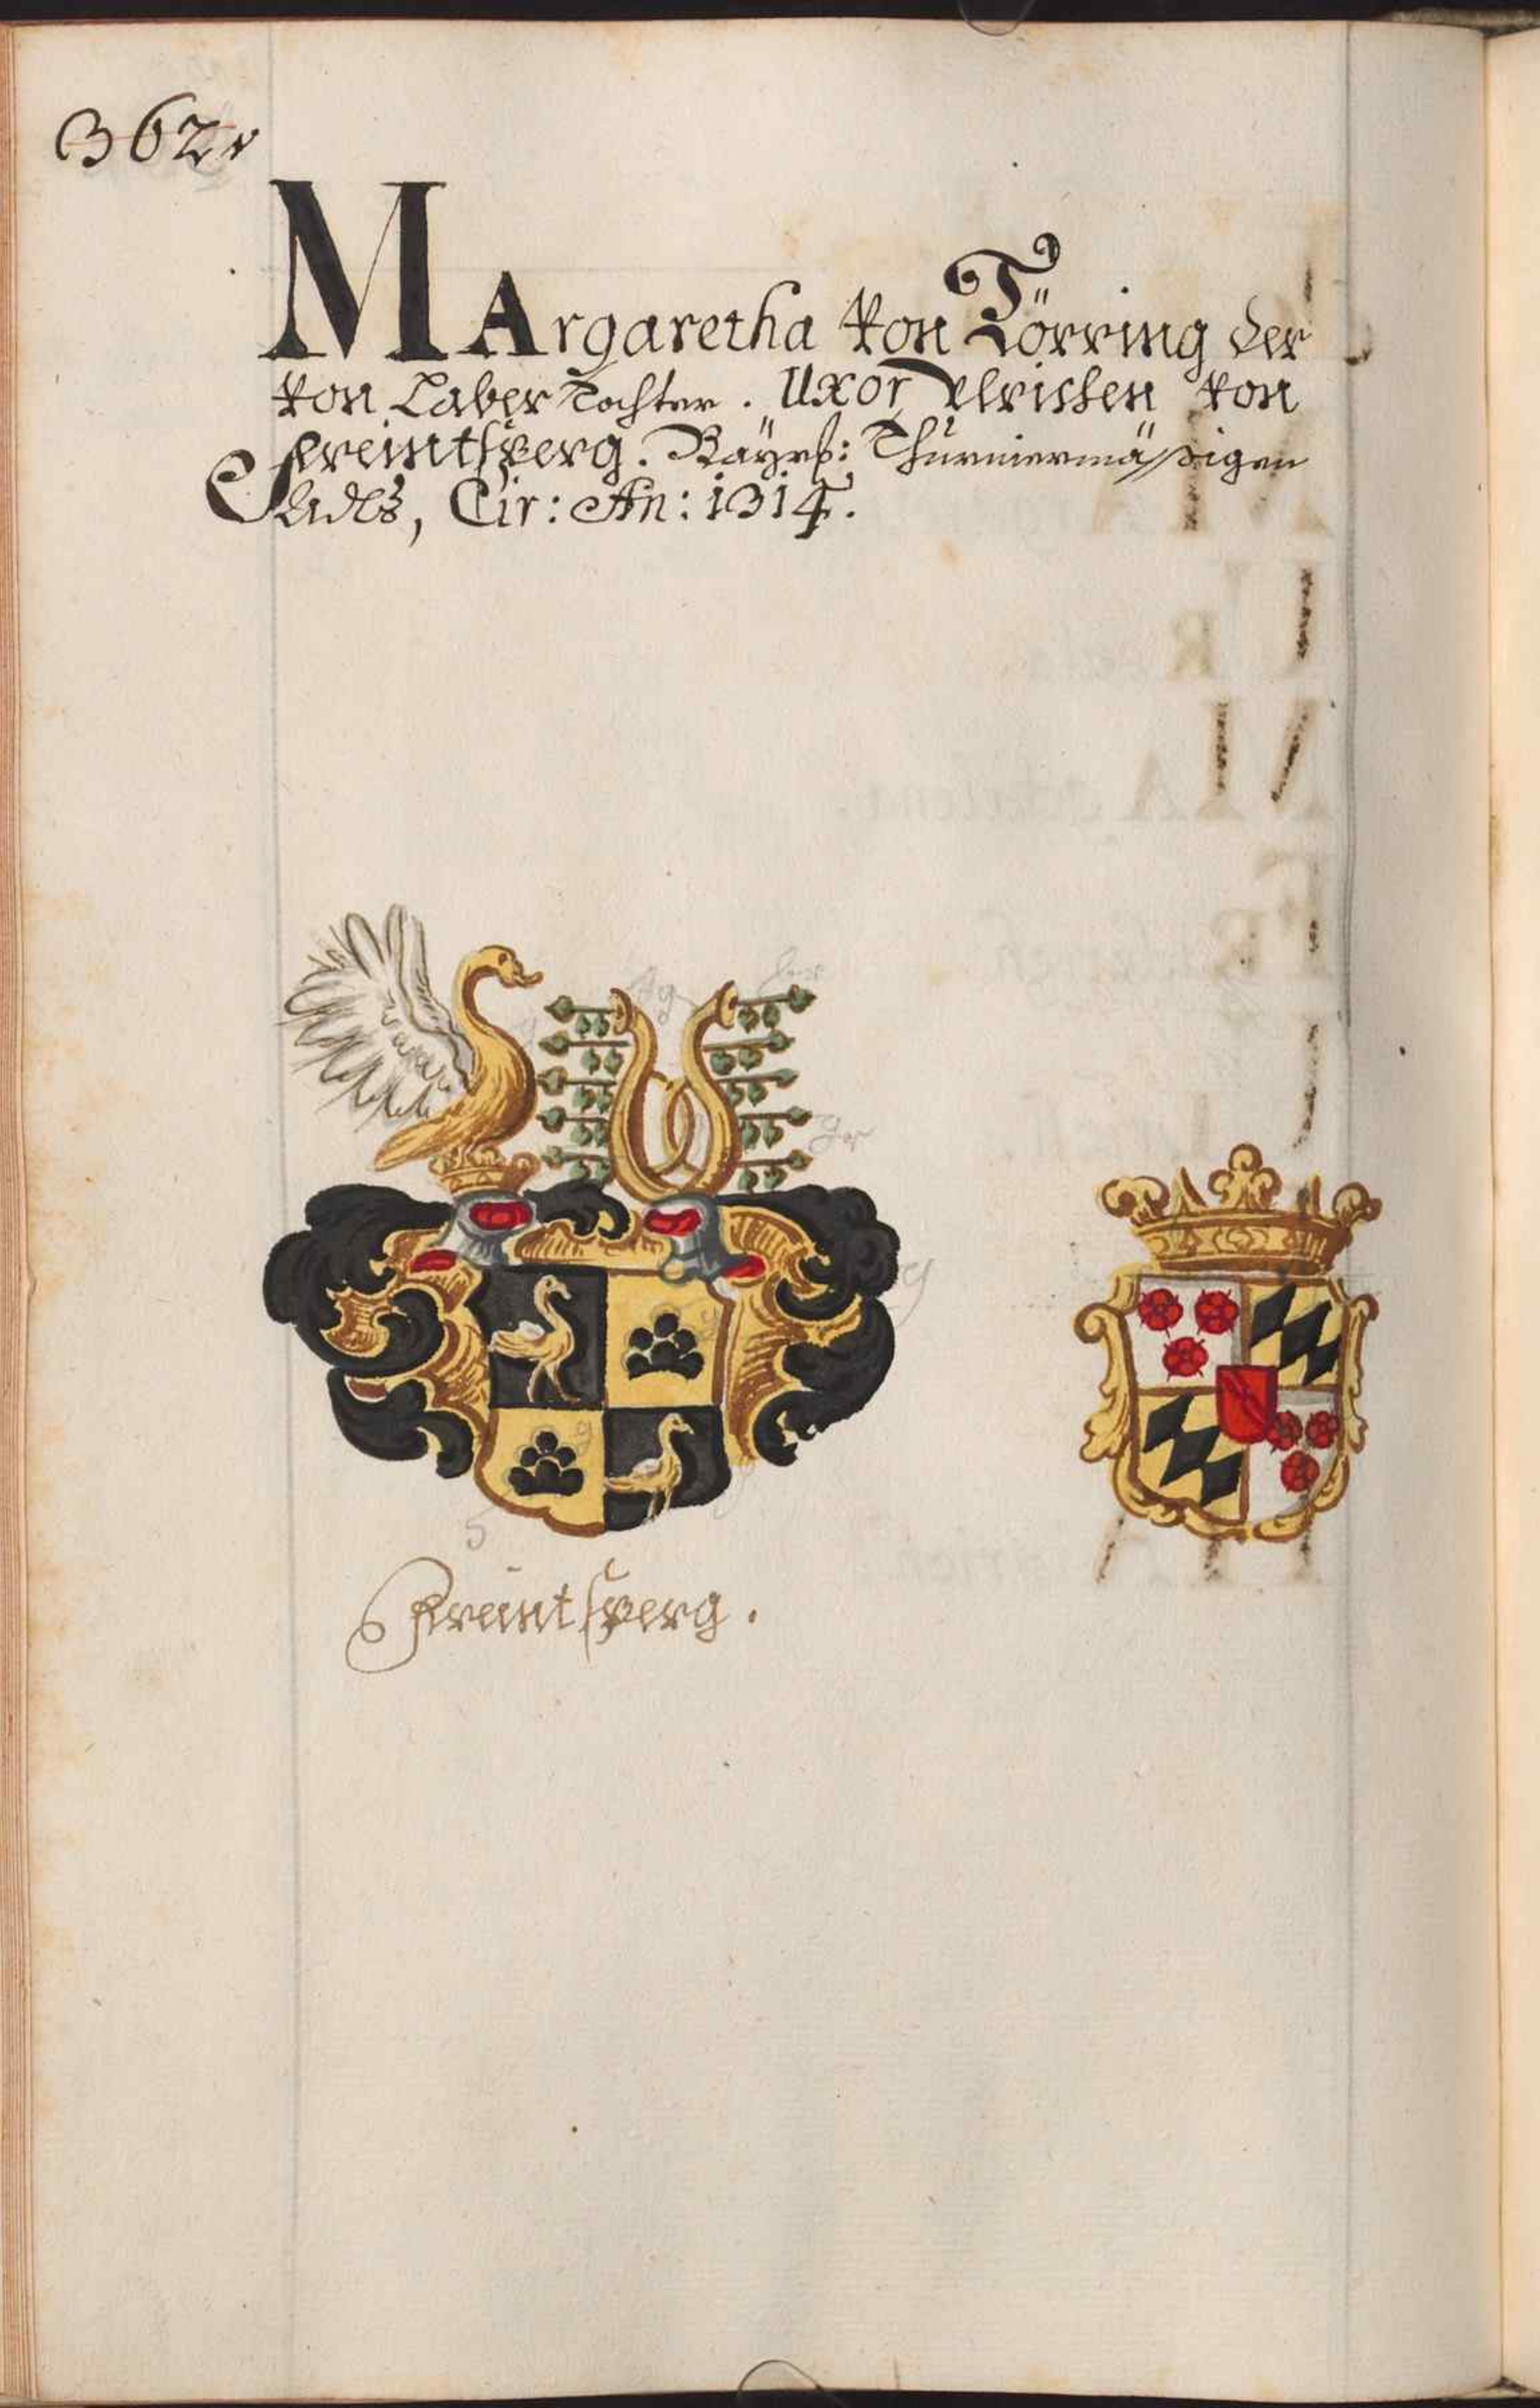 362.
MArgaretha von Törring der
von Laber Tochter. Uxor Ulrichen von
Freintsperg. Bäyrß: Thurniermäßigen
Adels, Cir: An: 1314.
Freintsperg.